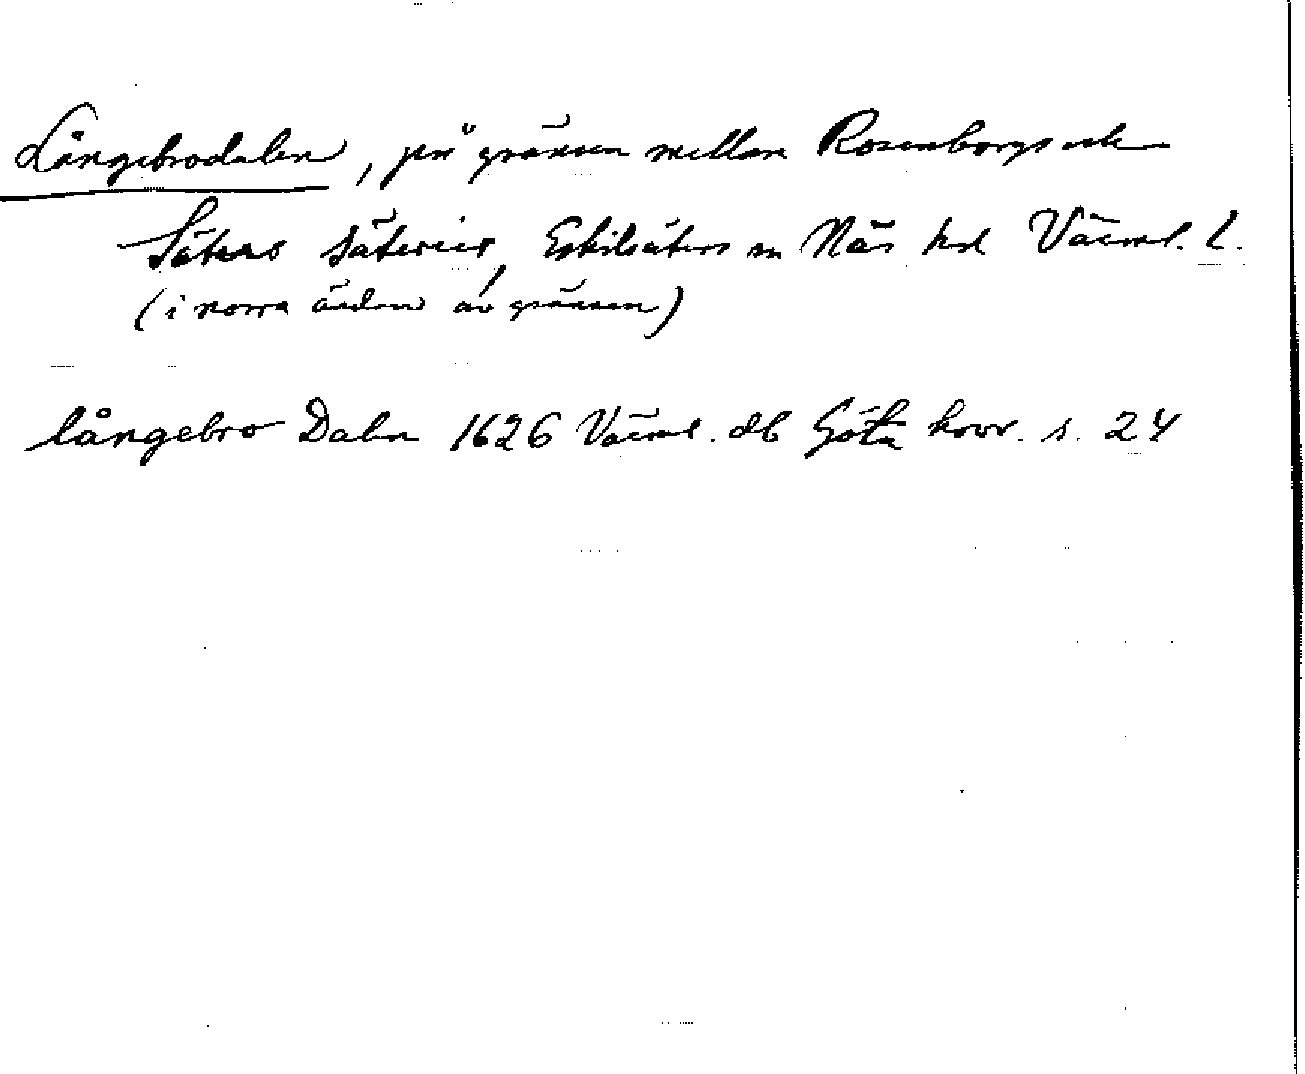 Långebrodalen, på gränsen mellan Rosenborgs och
Säters säterier, Eskilsäters sn Näs hd Värml. l.
(i norra ändan av gränsen)
långebro Dahn 1626 Värml. db Göta hovr. s. 24